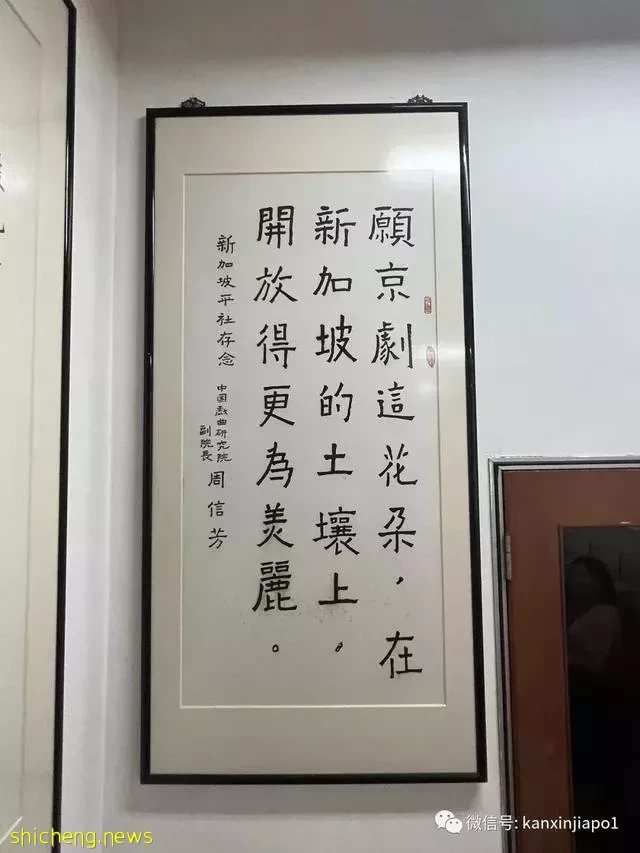 願京劇這花朵，在
新加坡的土壤上。
開放得更為美麗。
新加坡平社存念
中国戲曲研究院
副院長
周信芳
shicheng.news
微信号: kanxinjiapo1